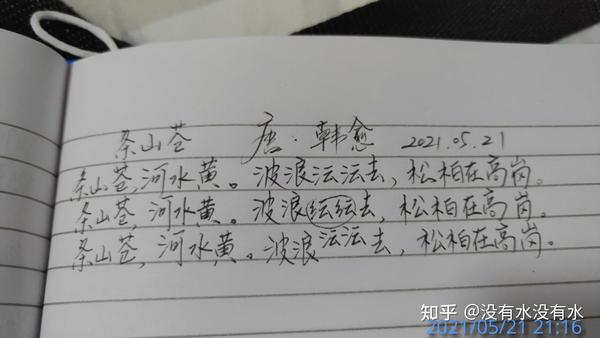 条山苍 唐·韩愈 2021.05.21
条山苍,河水黄。波浪沄沄去,松柏在高岗。
条山苍,河水黄。波浪纭纭去,松柏在高岗。
条山苍,河水黄。波浪沄沄去,松柏在高岗。
知乎 @没有水没有水
2021/05/21 21:16